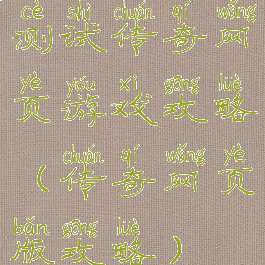 cè shì chuán qí wǎng
测试传奇网
yè yóu xì gōng lüè
页游戏攻略
chuán qí wǎng yè
（传奇网页
bǎn gōng lüè
版攻略）